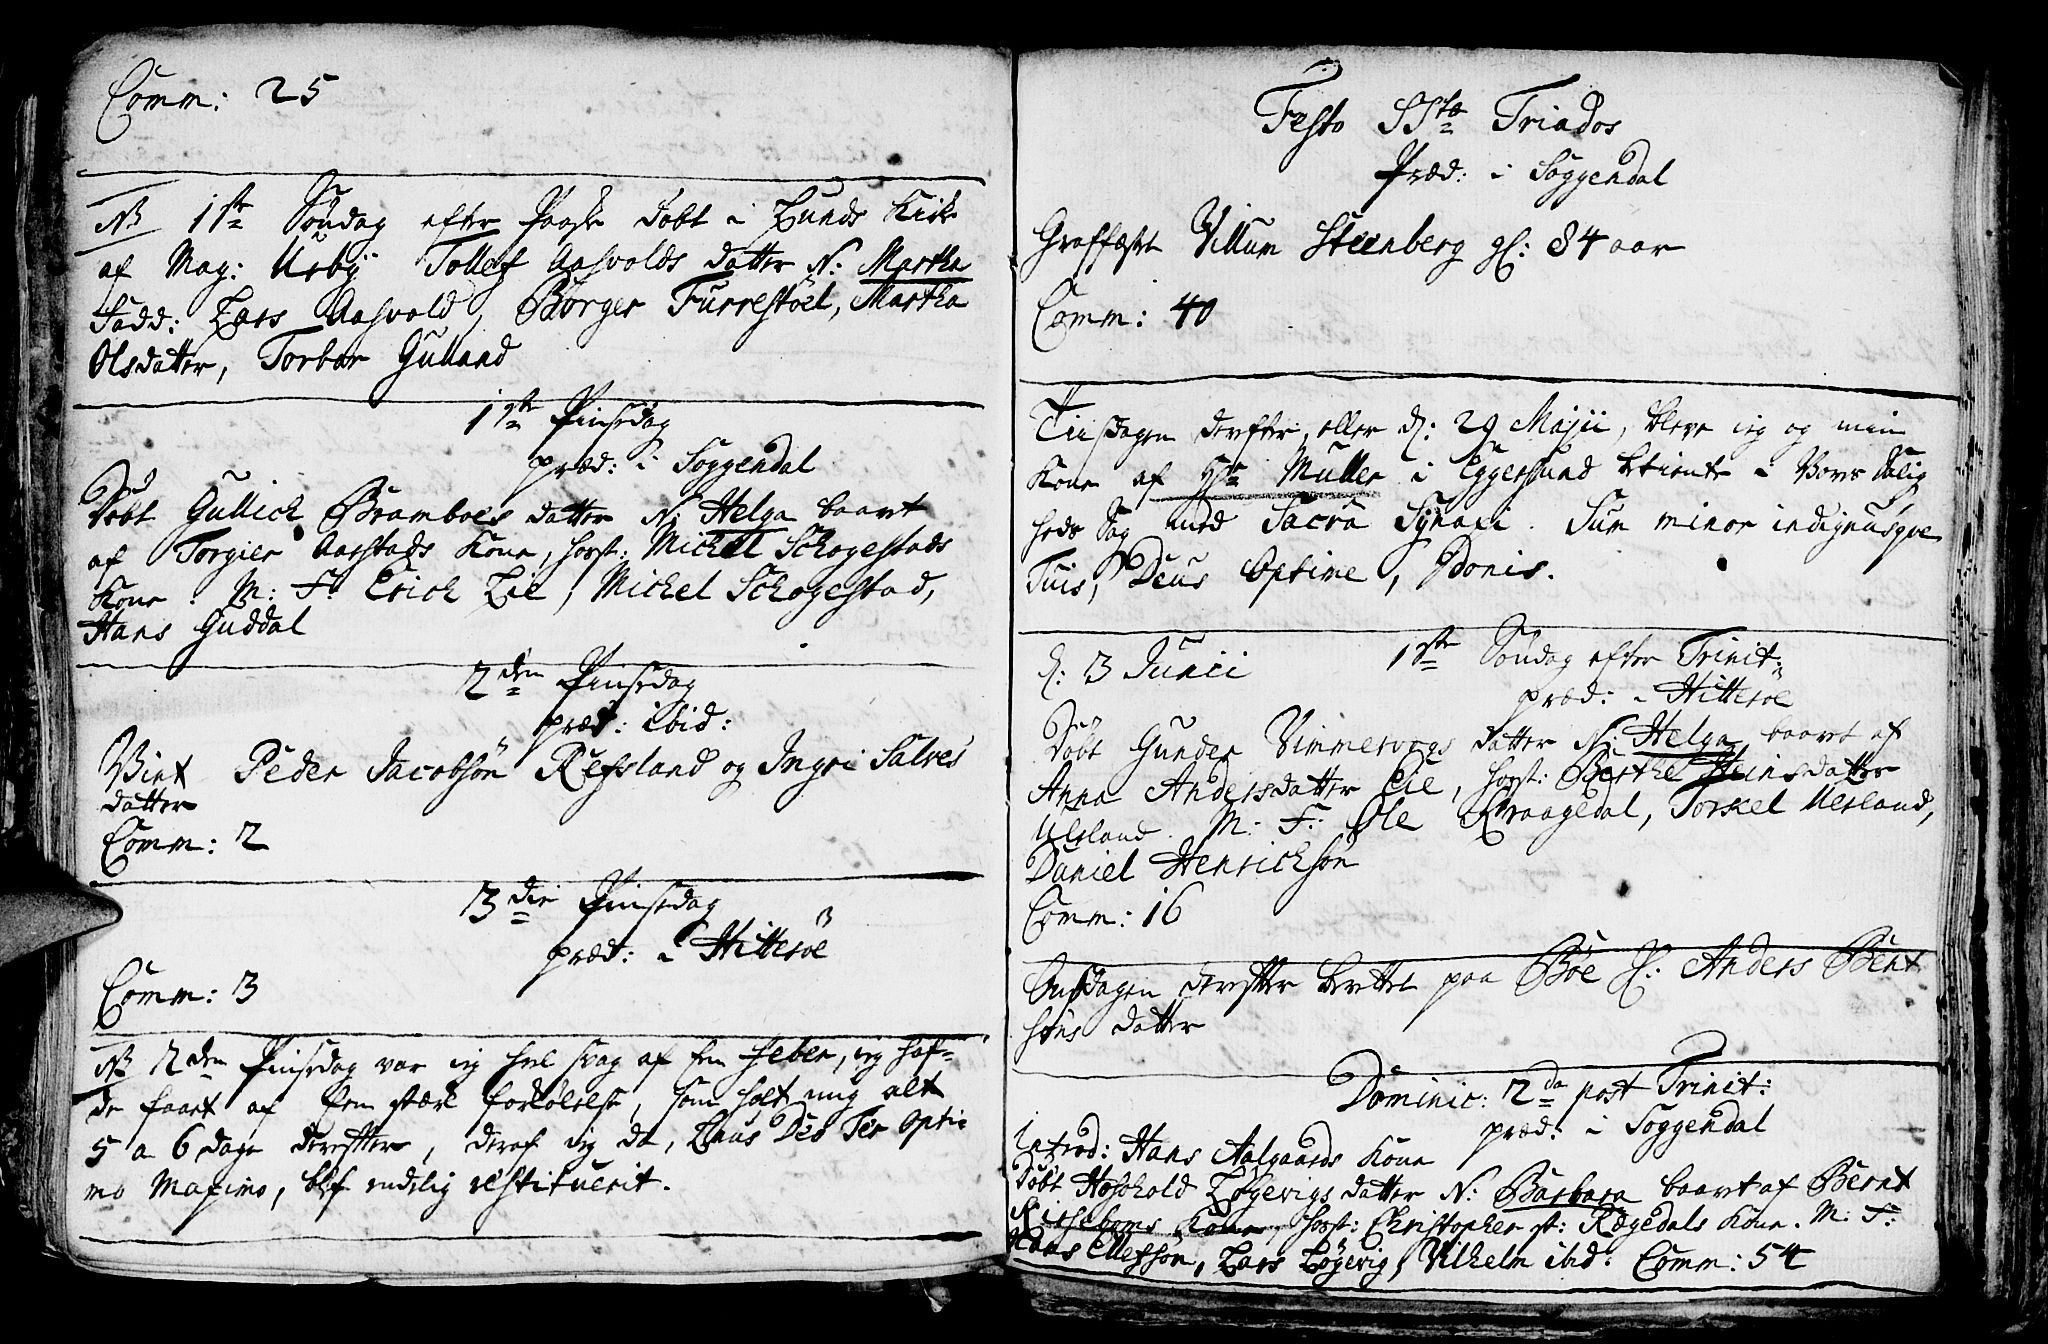 Comm: 25
NB 1ste Søndag efter Paaske døbt i Lunds Kirke
af Mag: Ursby Tollef Aasvolds datter N: Martha
Fadd: Lars Aasvold, Børger Furrestøel, Martha
Olsdatter, Torbor Gulland
1ste Pinsedag
præd: i Soggendal
Døbt Gullich Bramboes datter N. Helga baaret
af Torgier Aarstads Kone, horst: Michel Schogestads
Kone. M: F: Erich Lie, Michel Schogestad,
Hans Guddal
2den Pinsedag
præd: ibid:
Viet Peder Jacobsøn Refsland og Ingri Salves
datter
Comm: 2
3die Pinsedag
præd: i Hitterøe
Comm: 3
NB 2den Pinsedag var ieg heel svag af een Feber, ieg haf-
de faaet af een stærk forkølelse, som holt mig alt
5 a 6 dage derefter, deraf ieg da, Laus Deo Ter Opti
mo Maximo, blef endelig restituerit.
Festo SSte Triados
Præd: i Soggendal
Graffæstet Villum Steenberg gl: 84 aar
Comm: 40
Tiisdagen derefter, eller d: 29 Majii, bleve ieg og min
Kone af Hr Muller i Eggersund betient i Vores Salig
heds Sag med Sacra Synaxi. Sum minor indignusqve
Tuis, Deus Optime, Donis.
d: 3 Junii 1ste Søndag efter Trinit:
præd: i Hitterøe
Døbt Gunder Vimmervogs datter N: Helga baaret af
Anna Andersdatter Eie, horst: Berthe Steinsdatter
Ulsland. M: F: Ole Kraagedal, Torkel Uesland,
Daniel Henrichsøn
Comm: 16
Onsdagen derefter berettet paa Bøe Sl: Anders Bent
søns datter
Dominic: 2da post Trinit:
præd: i Soggendal
Introd: Hans Aalgaards Kone
Døbt Hoskold Løgevigs datter N: Barbara baaret af Bernt
Kone, horst: Christopher st: Rægedals Kone. M: F:
Ellefsøn, Lars Løgevig, Vilhelm ibid: Comm: 54